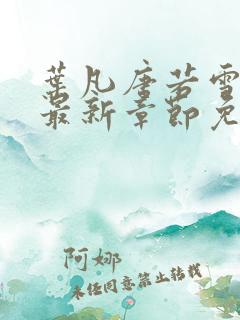 葉凡唐若雪
最新章節免
阿娜
未经同意禁止转载